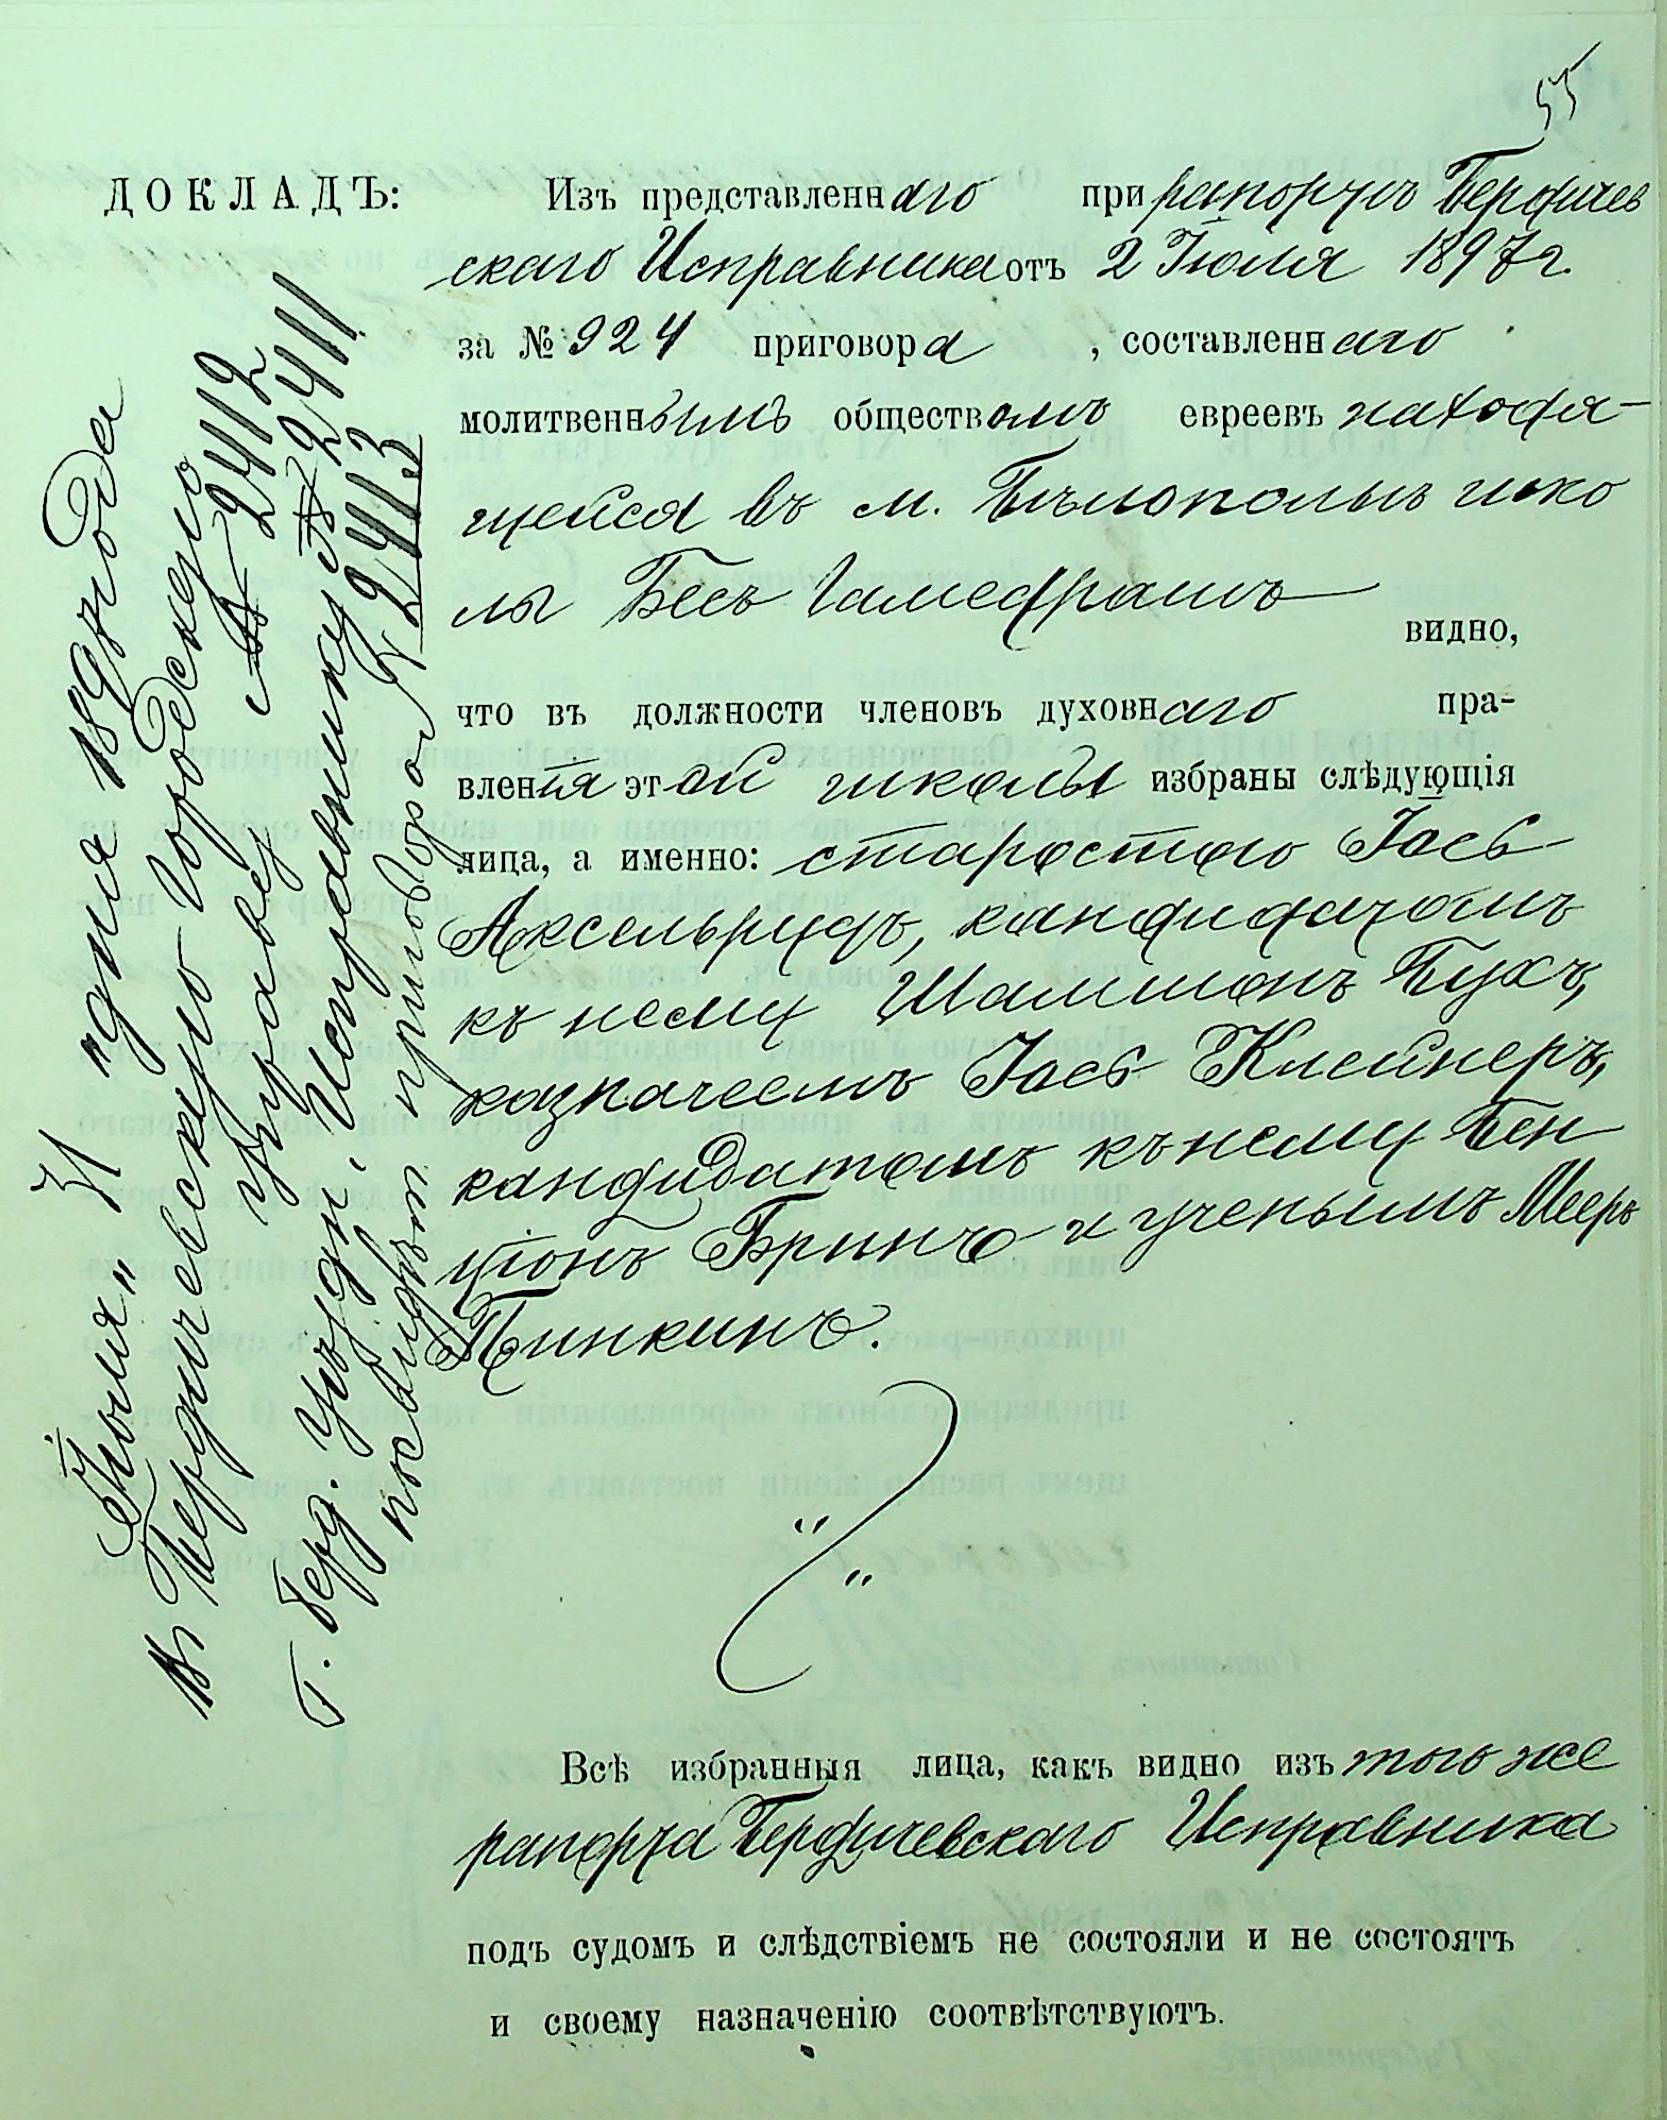 55
ДОКЛАДЪ:
Изъ представленнаго при рапортѣ Бердичев
скаго Исправника отъ 2 Іюля 1897 г.
за № 924 приговора , составленнаго
молитвеннымъ обществомъ евреевъ находя-
щейся въ м. Бѣлополье шко
лы Бесъ Гамедрашъ
видно,
что въ должности членовъ духовнаго пра-
вленія этой школы избраны слѣдующія
лица, а именно: старостою Іось
Аксельрудъ, кандидатомъ
къ нему Шамшонъ Бухъ,
казначеемъ Іось Клейнеръ,
кандидатомъ къ нему Бен
ціонъ Бринъ и ученымъ Мееръ
Пинкинъ.
Всѣ избранныя лица, какъ видно изъ того же
рапорта Бердичевскаго Исправника
подъ судомъ и слѣдствіемъ не состояли и не состоятъ
и своему назначенію соотвѣтствуютъ.
Іюля „31" дня 1897 года
Въ Бердичевскую Городскую
Управу № 2412
Г. Берд. Уѣздн. Исправнику № 2411
приговора № 2413